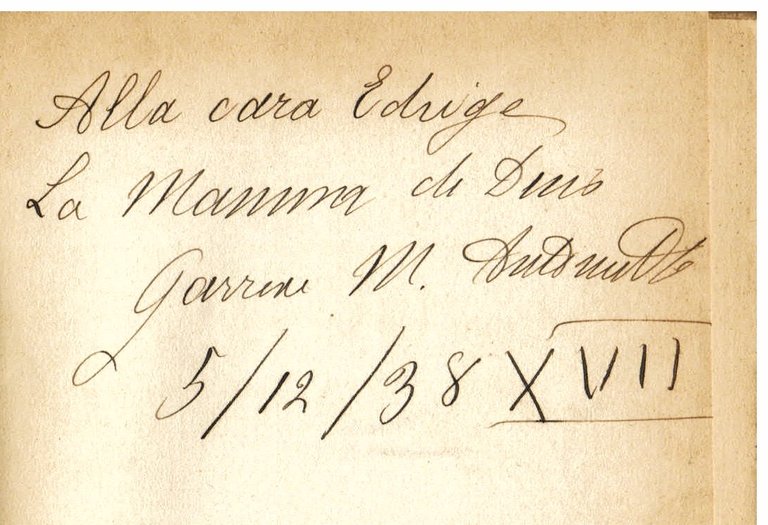 Alla cara Edvige
La Mamma di
Garrone M.
5/12/38 XVII